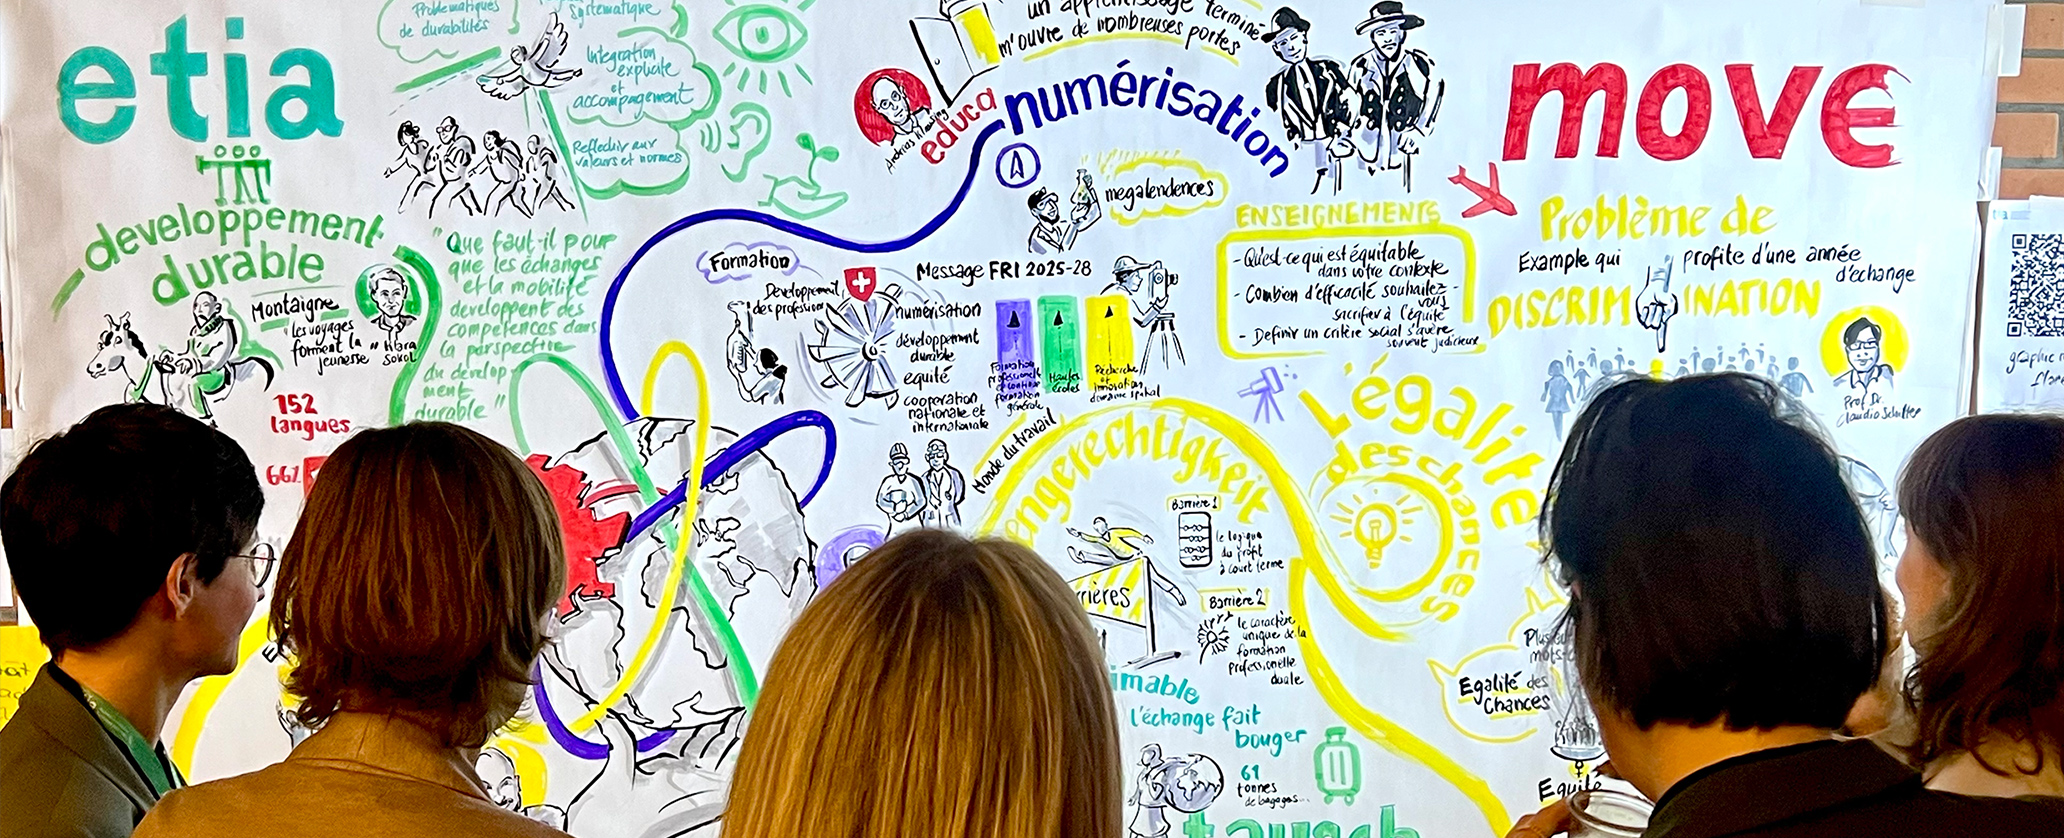 etia
developpement
durable
Montaigne
"les voyages
forment la
jeunesse"
Klara
Sokol
152
langues
66%
Problématiques
de durabilités
systématique
Integration
explicite
et
accompagnement
Reflechir aux
valeurs et normes
"Que faut-il pour
que les échanges
et la mobilité
developpent des
competences dans
la perspective
du develop-
ment
durable"
un apprentissage terminé
m'ouvre de nombreuses portes
educa
numérisation
megatendences
Formation
Developpement
des professions
Message FRI 2025-28
numérisation
développement
durable
equité
cooperation
nationale et
internationale
Formation
professionelle
et continue
formation
générale
Hautes
écoles
Recherche
et
innovation
domaine spatial
Monde du travail
engerechtigkeit
Barrière 1
le logique
du profit
à court terme
rières
Barrière 2
le caractère
unique de la
formation
professionelle
duale
imable
l'échange fait
bouger
61
tonnes
de bagages...
tausch
ENSEIGNEMENTS
- Qu'est-ce qui est équitable
dans votre contexte
- Combien d'efficacité souhaitez-
vous
sacrifier à l'équité
- Definir un critère social s'avère
souvent judicieux
L'égalité
des chances
move
Problème de
Example qui profite d'une année
d'échange
DISCRIMINATION
Prof. Dr.
Claudio Schuffer
Egalité des
Chances
Equité